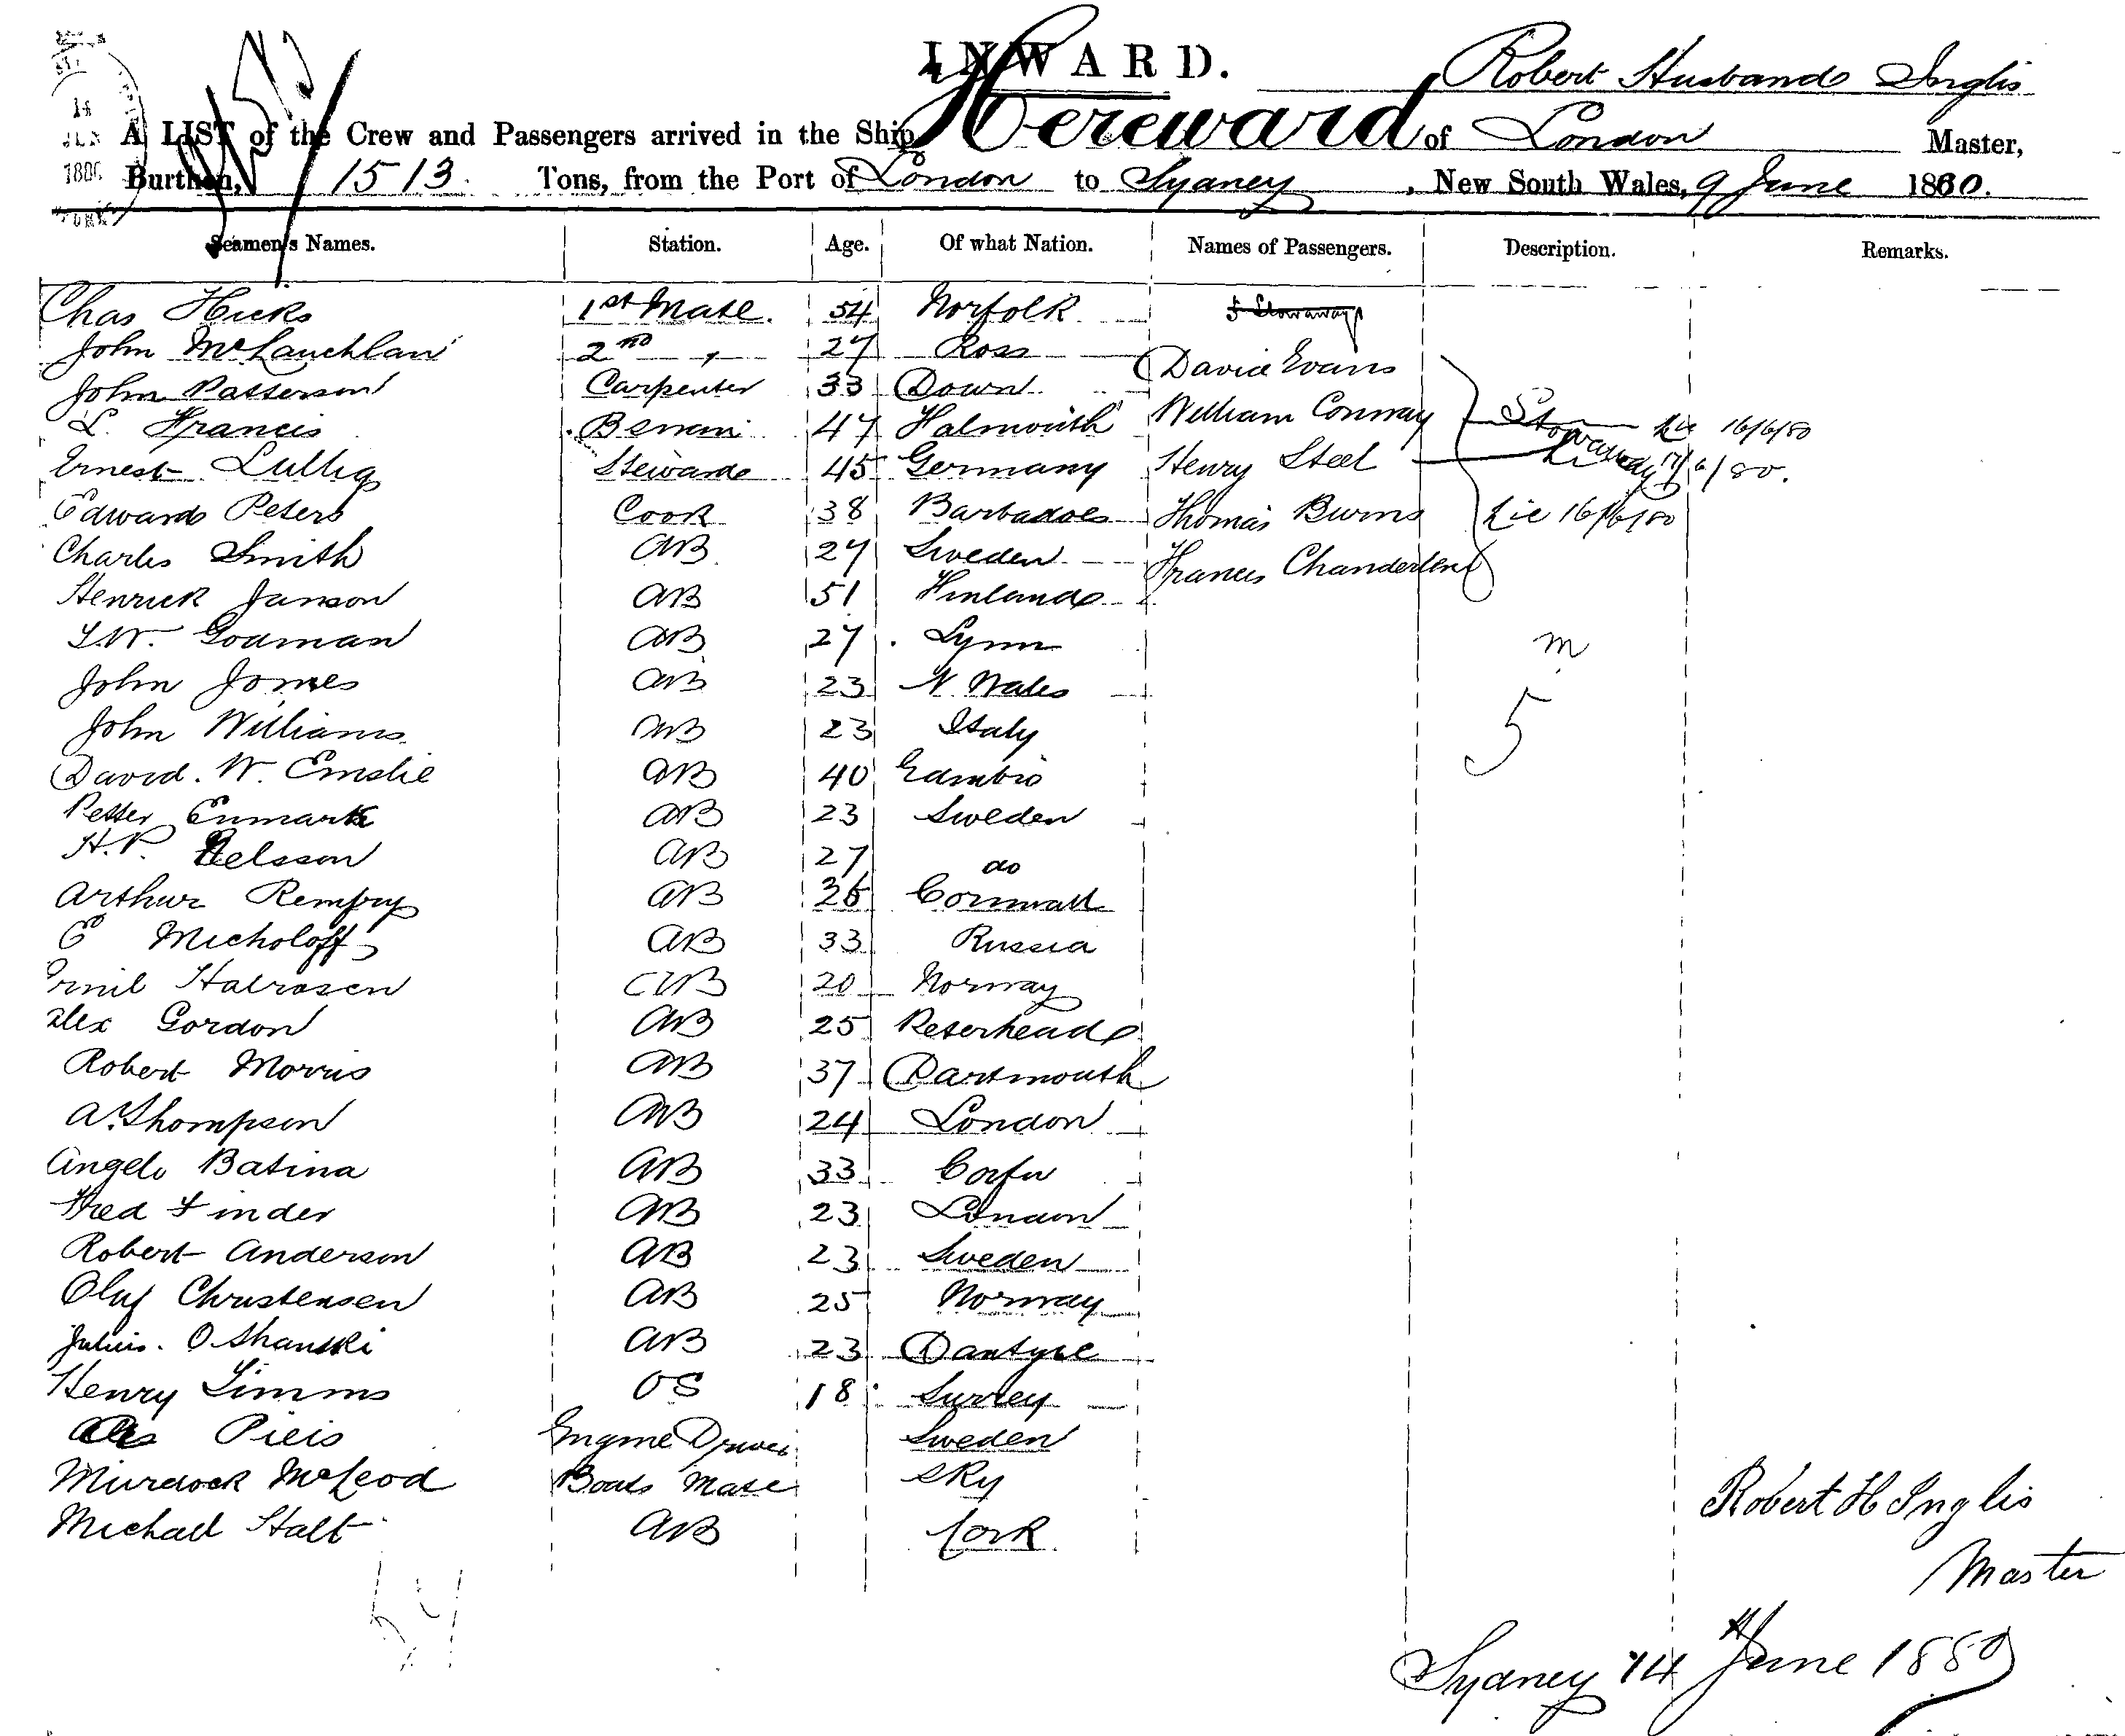 INWARD.
Robert Husband Inglis
A LIST of the Crew and Passengers arrived in the Ship Hereward of London Master,
Burthen, 1513 Tons, from the Port of London to Sydney, New South Wales, 9 June 1880.
Seamen's Names. Station. Age. Of what Nation. Names of Passengers. Description. Remarks.
Chas Hicks 1st Mate. 54 Norfolk 5 Stowaways
John McLauchlan 2nd " 27 Ross
David Evans
John Patterson Carpenter 33 Down
L. Francis 47 Falmouth William Conway Stowaways 16/6/80
Ernest Lullig Steward 45 Germany Henry Steel 17/6/80.
Edward Peters Cook 38 Barbadoes Thomas Burns 16/6/80
Charles Smith AB 27 Sweden
Francis
Henrick Janson AB 51 Finland
T.W. Godman AB 27 Lynn m
John Jones AB 23 N. Wales
John Williams AB 23 Italy 5
David. W. Emslie AB 40
Petter Enmark AB 23 Sweden
H.P. Nelsson AB 27 do
Arthur Remfry AB 26 Cornwall
E Micholoff AB 33 Russia
Emil Halvosen AB 20 Norway
Alex Gordon AB 25 Peterhead
Robert Morris AB 37 Dartmouth
A. Thompson AB 24 London
Angelo Batina AB 33 Corfu
Fred Finder AB 23 London
Robert Anderson AB 23 Sweden
Oluf Christensen AB 25 Norway
Julius. AB 23
Henry Simms OS 18 Surrey
Pieis Engine Driver Sweden
Murdock McLeod Boats Mate Sky
Robert H Inglis
Michael Stalt AB Cork
Master
Sydney 14th June 1880